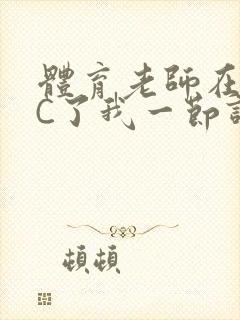 體育老師在
C了我一節
頓頓